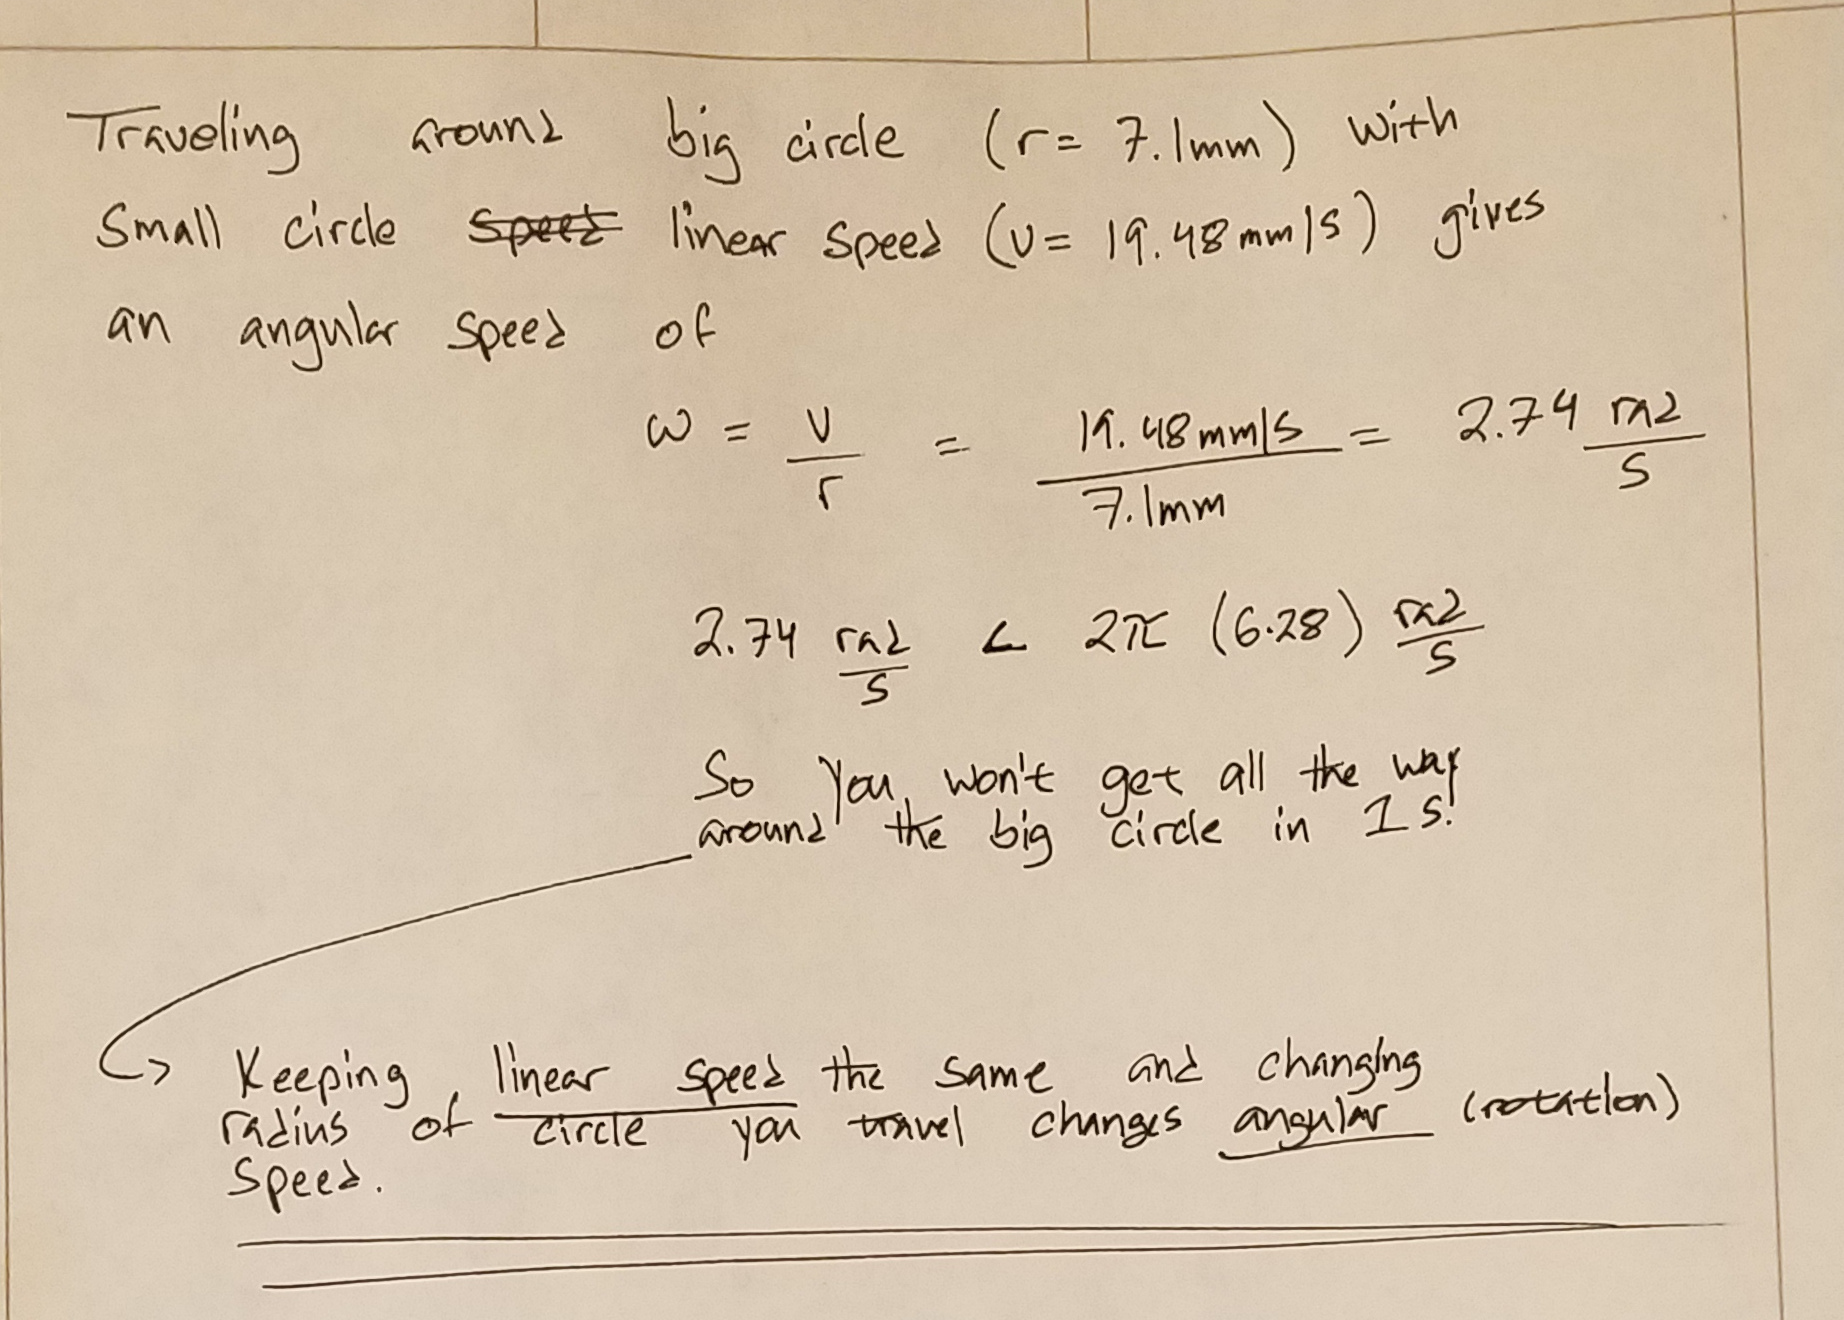 Traveling around big circle (r= 7.1mm) with
small circle ~~speed~~ linear speed (v= 19.48 mm/s) gives
an angular speed of
ω = v/r = 19.48 mm/s / 7.1mm = 2.74 rad/s
2.74 rad/s < 2π (6.28) rad/s
So you won't get all the way
around the big circle in 1 s!
Keeping linear speed the same and changing
radius of circle you travel changes angular (rotation)
speed.